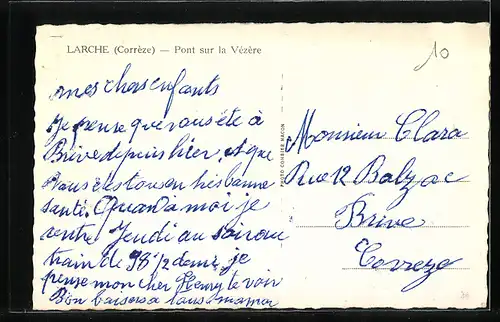 LARCHE (Corrèze) — Pont sur la Vézère
10
mes chas enfants
je pense que vous été à
Brive depuis hier, et que
vous êtes tous en
santé. Quand à moi je
rentre Jeudi au soir au
train de 9 1/2 demi, je
pense mon cher Henry te voir
Bon baisers a tous maman
PHOTO COMBIER MACON
Monsieur Clara
Rue 12 Balzac
Brive
Correze